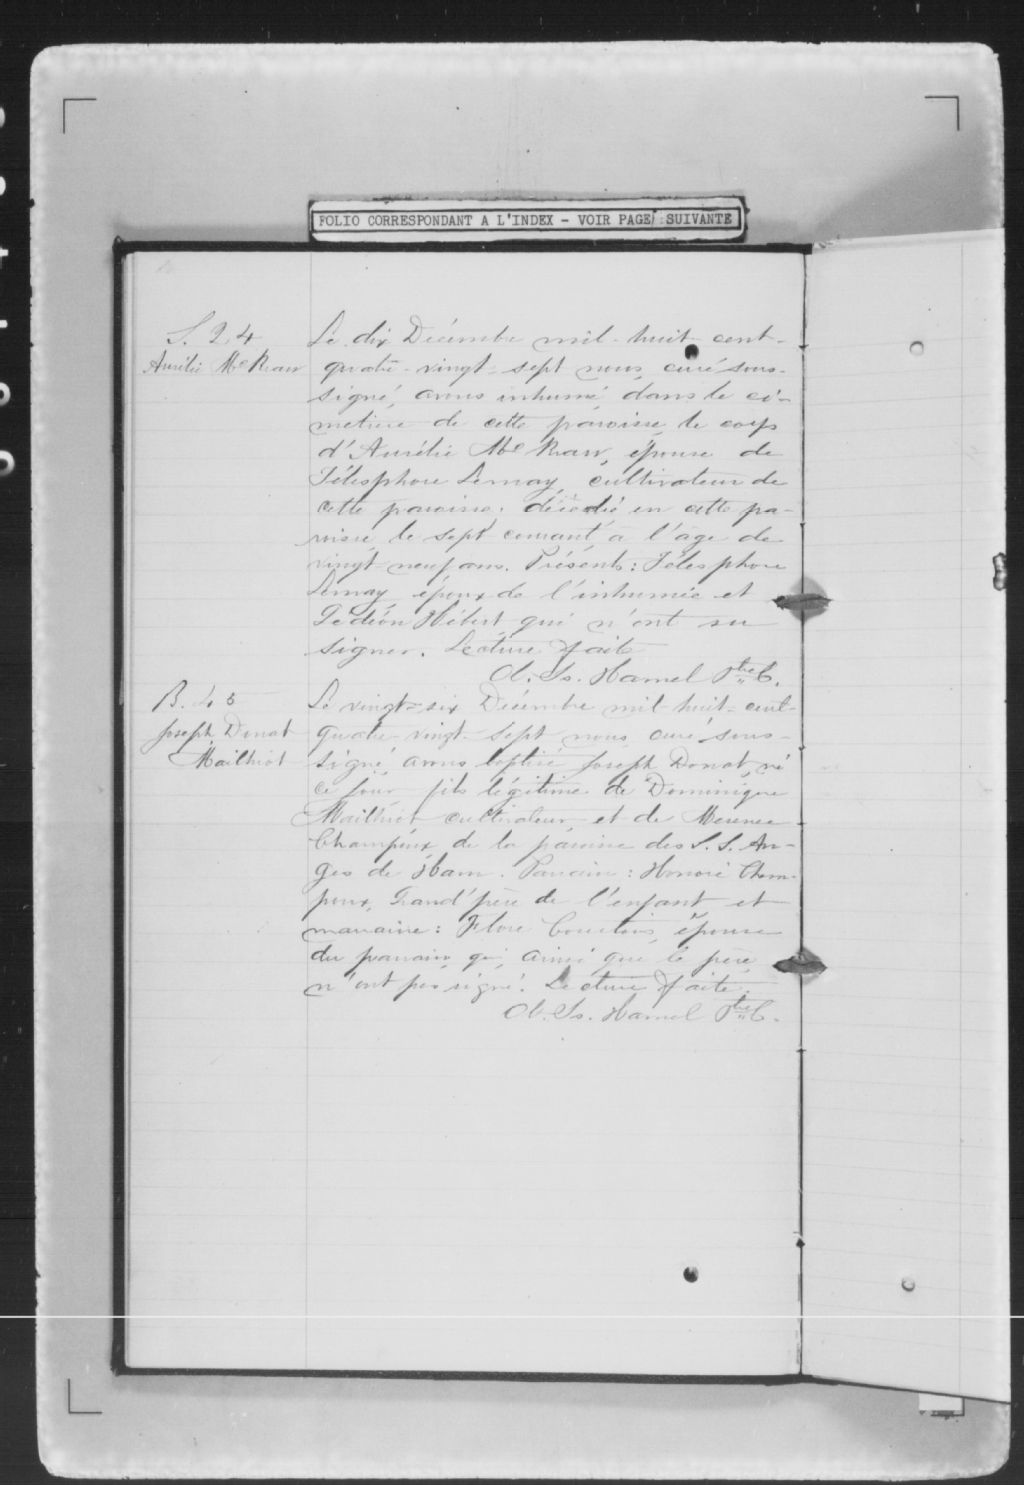 FOLIO CORRESPONDANT A L'INDEX - VOIR PAGE SUIVANTE
S. 24
Aurélie Mc Kraw
Le dix Décembre mil-huit cent-
quatre-vingt-sept nous, curé sous-
signé, avons inhumé dans le ci-
metière de cette paroisse, le corps
d'Aurélie Mc Kraw, épouse de
Télesphore Lemay, cultivateur de
cette paroisse, décédée en cette pa-
roisse, le sept courant, à l'âge de
vingt-neuf ans. Présents: Télesphore
Lemay, époux de l'inhumée et
Gédéon Hébert qui n'ont su
signer. Lecture faite
Ls. Hamel Ptre C.
B. 45
Joseph Donat
Mailhiot
Le vingt-six Décembre mil-huit-cent-
quatre-vingt-sept nous, curé sous-
signé, avons baptisé Joseph Donat, né
ce jour fils légitime de Dominique
Mailhiot cultivateur et de
Champoux de la paroisse des S.S. An-
ges de Ham. Parrain: Honoré Cham-
poux, Grand'père de l'enfant et
marraine: Flore épouse
du parrain qui, ainsi que le père
n'ont pas signé. Lecture faite.
Ls. Hamel Ptre C.